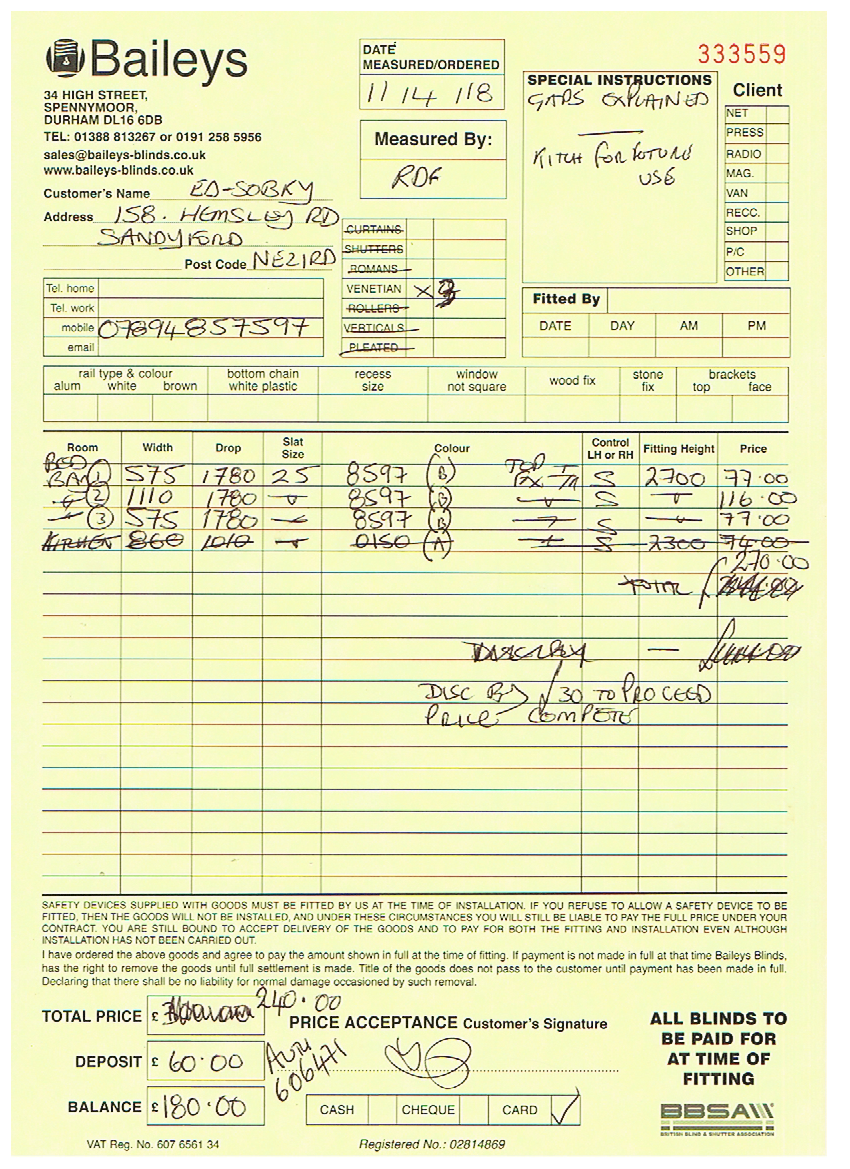 Baileys
34 HIGH STREET,
SPENNYMOOR,
DURHAM DL16 6DB
TEL: 01388 813267 or 0191 258 5956
sales@baileys-blinds.co.uk
www.baileys-blinds.co.uk
Customer's Name ED-SOBKY
Address 158. HEMSLEY RD
SANDYFORD
Post Code NE21RD
Tel. home
Tel. work
mobile 07894857597
email
DATE
MEASURED/ORDERED
11/4/18
Measured By:
RDF
CURTAINS
SHUTTERS
ROMANS
VENETIAN X 3
ROLLERS
VERTICALS
PLEATED
333559
SPECIAL INSTRUCTIONS
GAPS EXPLAINED
KITCH FOR FUTURE
USE
Client
NET
PRESS
RADIO
MAG.
VAN
RECC.
SHOP
P/C
OTHER
Fitted By
DATE DAY AM PM
rail type & colour
alum white brown
bottom chain
white plastic
recess
size
window
not square
wood fix
stone
fix
brackets
top face
Room Width Drop Slat Size Colour Control LH or RH Fitting Height Price
BED
1 575 1780 25 8597 (B) TOP S 2700 77.00
2 1110 1780 8597 (B) S 116.00
3 575 1780 8597 (B) S 77.00
KITCHEN 860 1010 0150 (A) S 2300 74.00
270.00
TOTAL
DISC BY £30 TO PROCEED
PRICE COMPETE
SAFETY DEVICES SUPPLIED WITH GOODS MUST BE FITTED BY US AT THE TIME OF INSTALLATION. IF YOU REFUSE TO ALLOW A SAFETY DEVICE TO BE
FITTED, THEN THE GOODS WILL NOT BE INSTALLED, AND UNDER THESE CIRCUMSTANCES YOU WILL STILL BE LIABLE TO PAY THE FULL PRICE UNDER YOUR
CONTRACT. YOU ARE STILL BOUND TO ACCEPT DELIVERY OF THE GOODS AND TO PAY FOR BOTH THE FITTING AND INSTALLATION EVEN ALTHOUGH
INSTALLATION HAS NOT BEEN CARRIED OUT.
I have ordered the above goods and agree to pay the amount shown in full at the time of fitting. If payment is not made in full at that time Baileys Blinds,
has the right to remove the goods until full settlement is made. Title of the goods does not pass to the customer until payment has been made in full.
Declaring that there shall be no liability for normal damage occasioned by such removal.
TOTAL PRICE £ 240.00
DEPOSIT £ 60.00
BALANCE £ 180.00
AUTH
606471
PRICE ACCEPTANCE Customer's Signature
CASH CHEQUE CARD ✓
ALL BLINDS TO
BE PAID FOR
AT TIME OF
FITTING
BBSA
BRITISH BLIND & SHUTTER ASSOCIATION
VAT Reg. No. 607 6561 34
Registered No.: 02814869